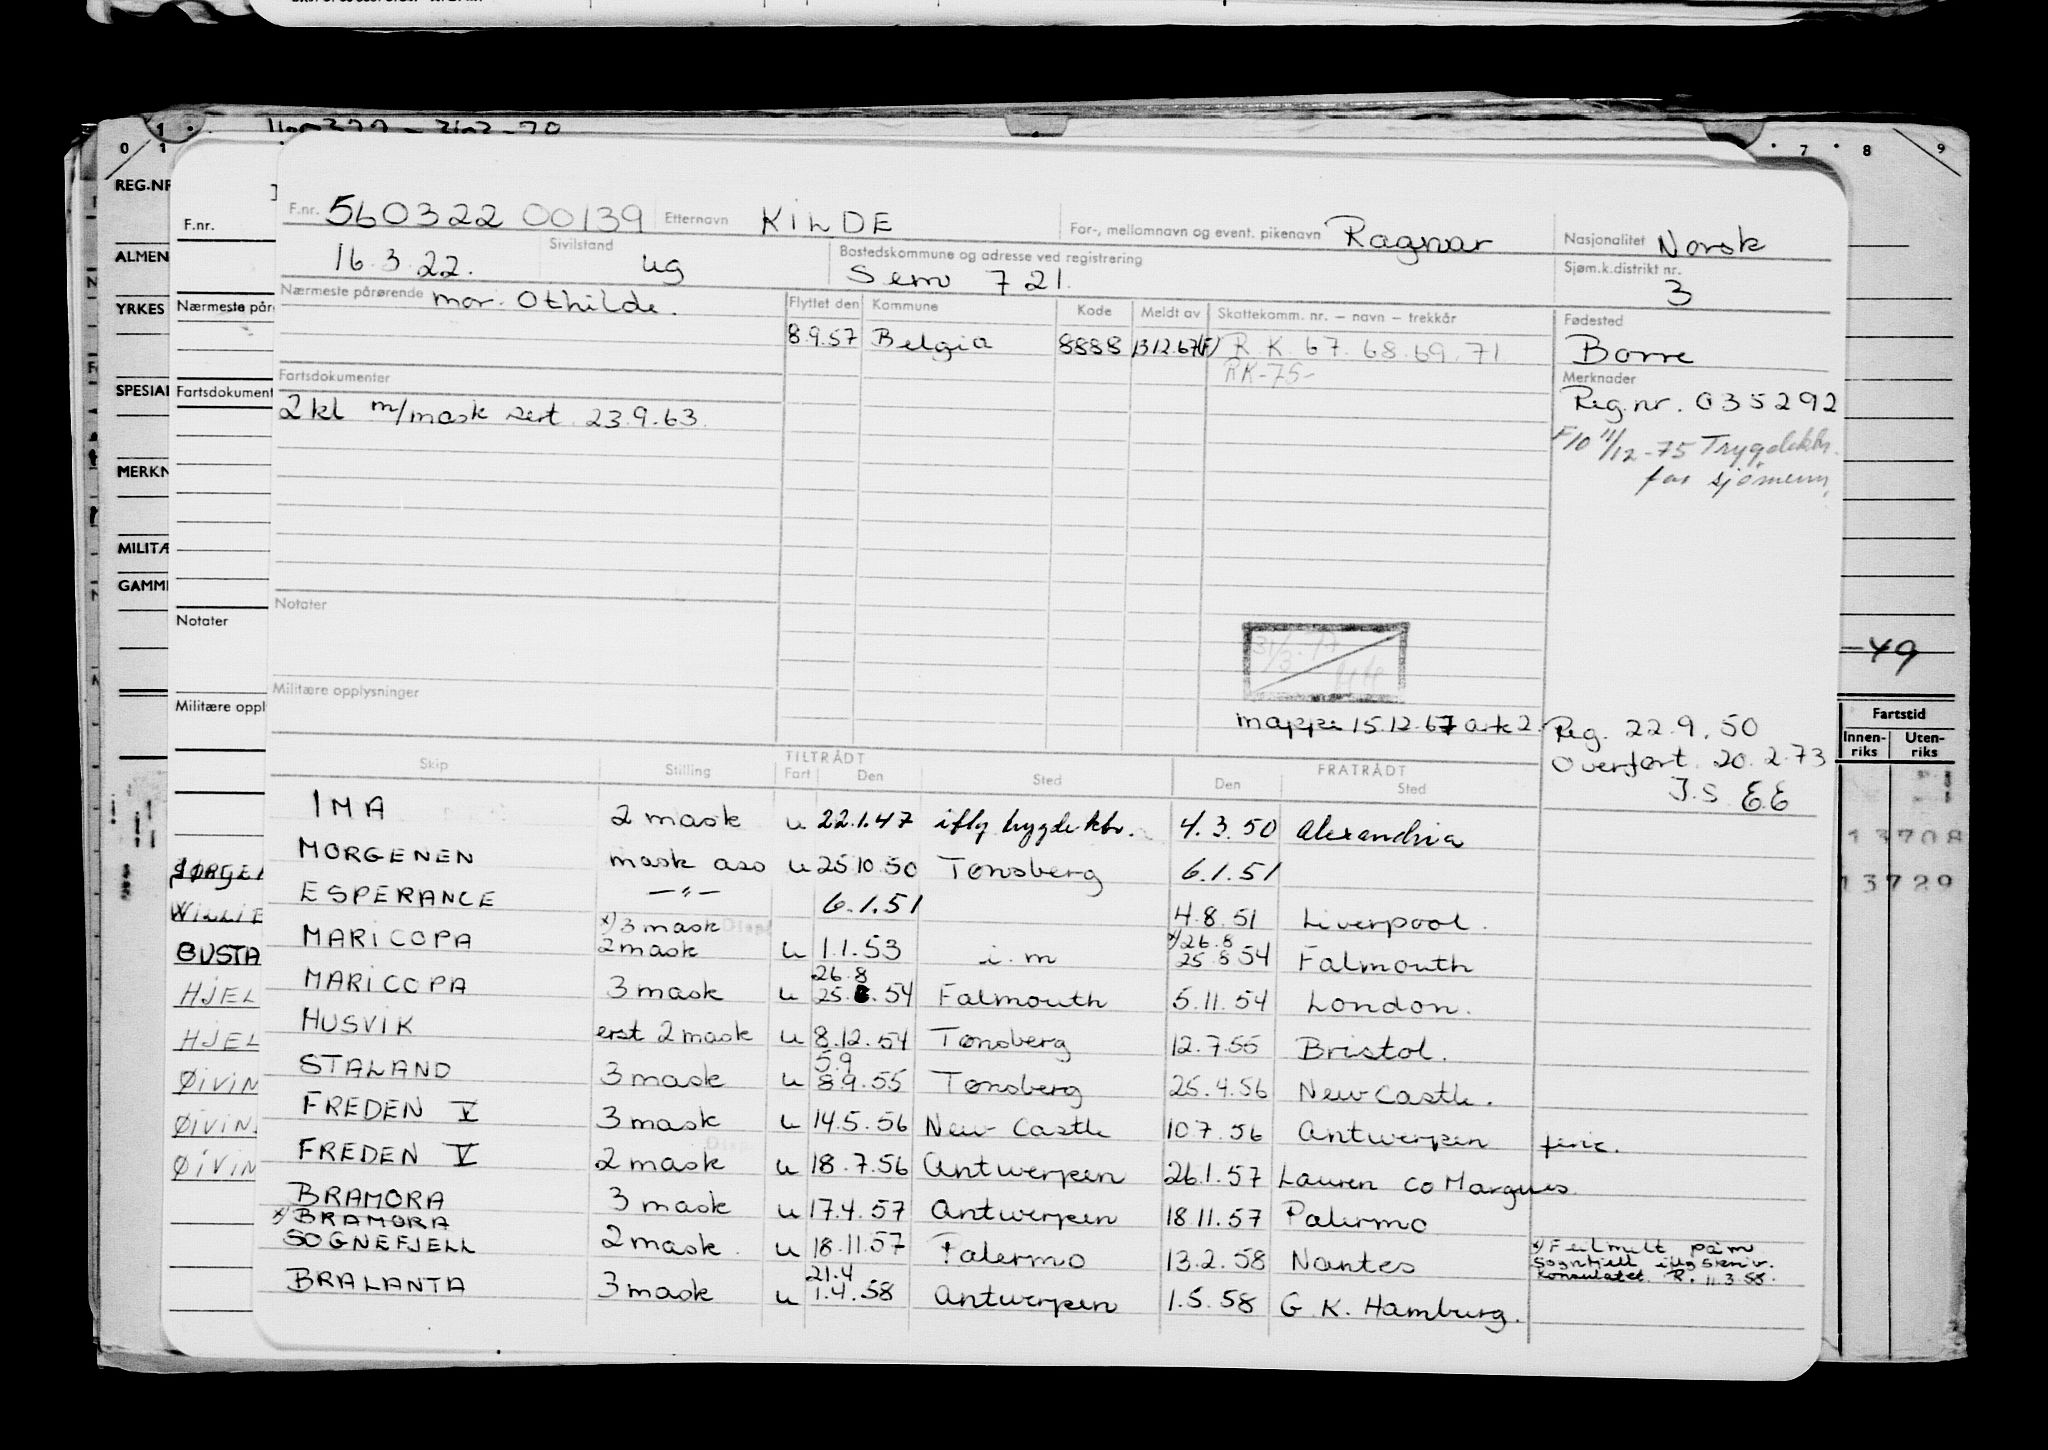 0 1 7 8 9
REG.NR
ALMEN
YRKES
SPESIAL
MERKN
MILITÆ
GAMME
F.nr.
Nærmeste pårø
Fartsdokument
Notater
Militære oppl
F.nr. 560322 00139 Etternavn KILDE For-, mellomnavn og event. pikenavn Ragnar Nasjonalitet Norsk
16.3.22. Sivilstand ug Bostedskommune og adresse ved registrering Sem 721. Sjøm.k.distrikt nr. 3
Nærmeste pårørende mor: Othilde. Flyttet den Kommune Kode Meldt av Skattekomm. nr. – navn – trekkår Fødested
8.9.57 Belgia 8888 13.12.67(F) R.K. 67. 68. 69. 71 Borre
RK-75-
Fartsdokumenter Merknader
2 kl m/mask sert. 23.9.63. Reg.nr. 035292
F10 11/12-75 Trygdektr.
for sjømenn,
Notater
31/3-77
-49
Militære opplysninger
mappe 15.12.67 ark 2. Reg. 22.9.50
Overført. 20.2.73
J.S. EE
Fartstid
Innen-riks Uten-riks
TILTRÅDT FRATRÅDT
Skip Stilling Fart Den Sted Den Sted
IMA 2 mask u 22.1.47 iflg trygdektr. 4.3.50 Alexandria
MORGENEN mask ass u 25.10.50 Tønsberg 6.1.51
ESPERANCE —"— 6.1.51 4.8.51 Liverpool.
MARICOPA x) 3 mask 2 mask u 1.1.53 i.m x) 26.8 25.8.54 Falmouth
MARICOPA 3 mask u 26.8 25.8.54 Falmouth 5.11.54 London.
HUSVIK erst 2 mask u 8.12.54 Tønsberg 12.7.55 Bristol.
STALAND 3 mask u 5.9 8.9.55 Tønsberg 25.4.56 New Castle.
FREDEN V 3 mask u 14.5.56 New Castle 10.7.56 Antwerpen ferie.
FREDEN V 2 mask u 18.7.56 Antwerpen 26.1.57 Lauren co Marques
BRAMORA 3 mask u 17.4.57 Antwerpen 18.11.57 Palermo
x) BRAMORA
SOGNEFJELL 2 mask. u 18.11.57 Palermo 13.2.58 Nantes x) Feilmelt på m Sognefjell iflg skriv. Konsulatet R. 11.3.58.
BRALANTA 3 mask u 21.4 1.4.58 Antwerpen 1.5.58 G.K. Hamburg.
JØRGE
WILLIE
GUSTA
HJEL
HJEL
ØIVIN
ØIVIN
ØIVIN
13708
13729